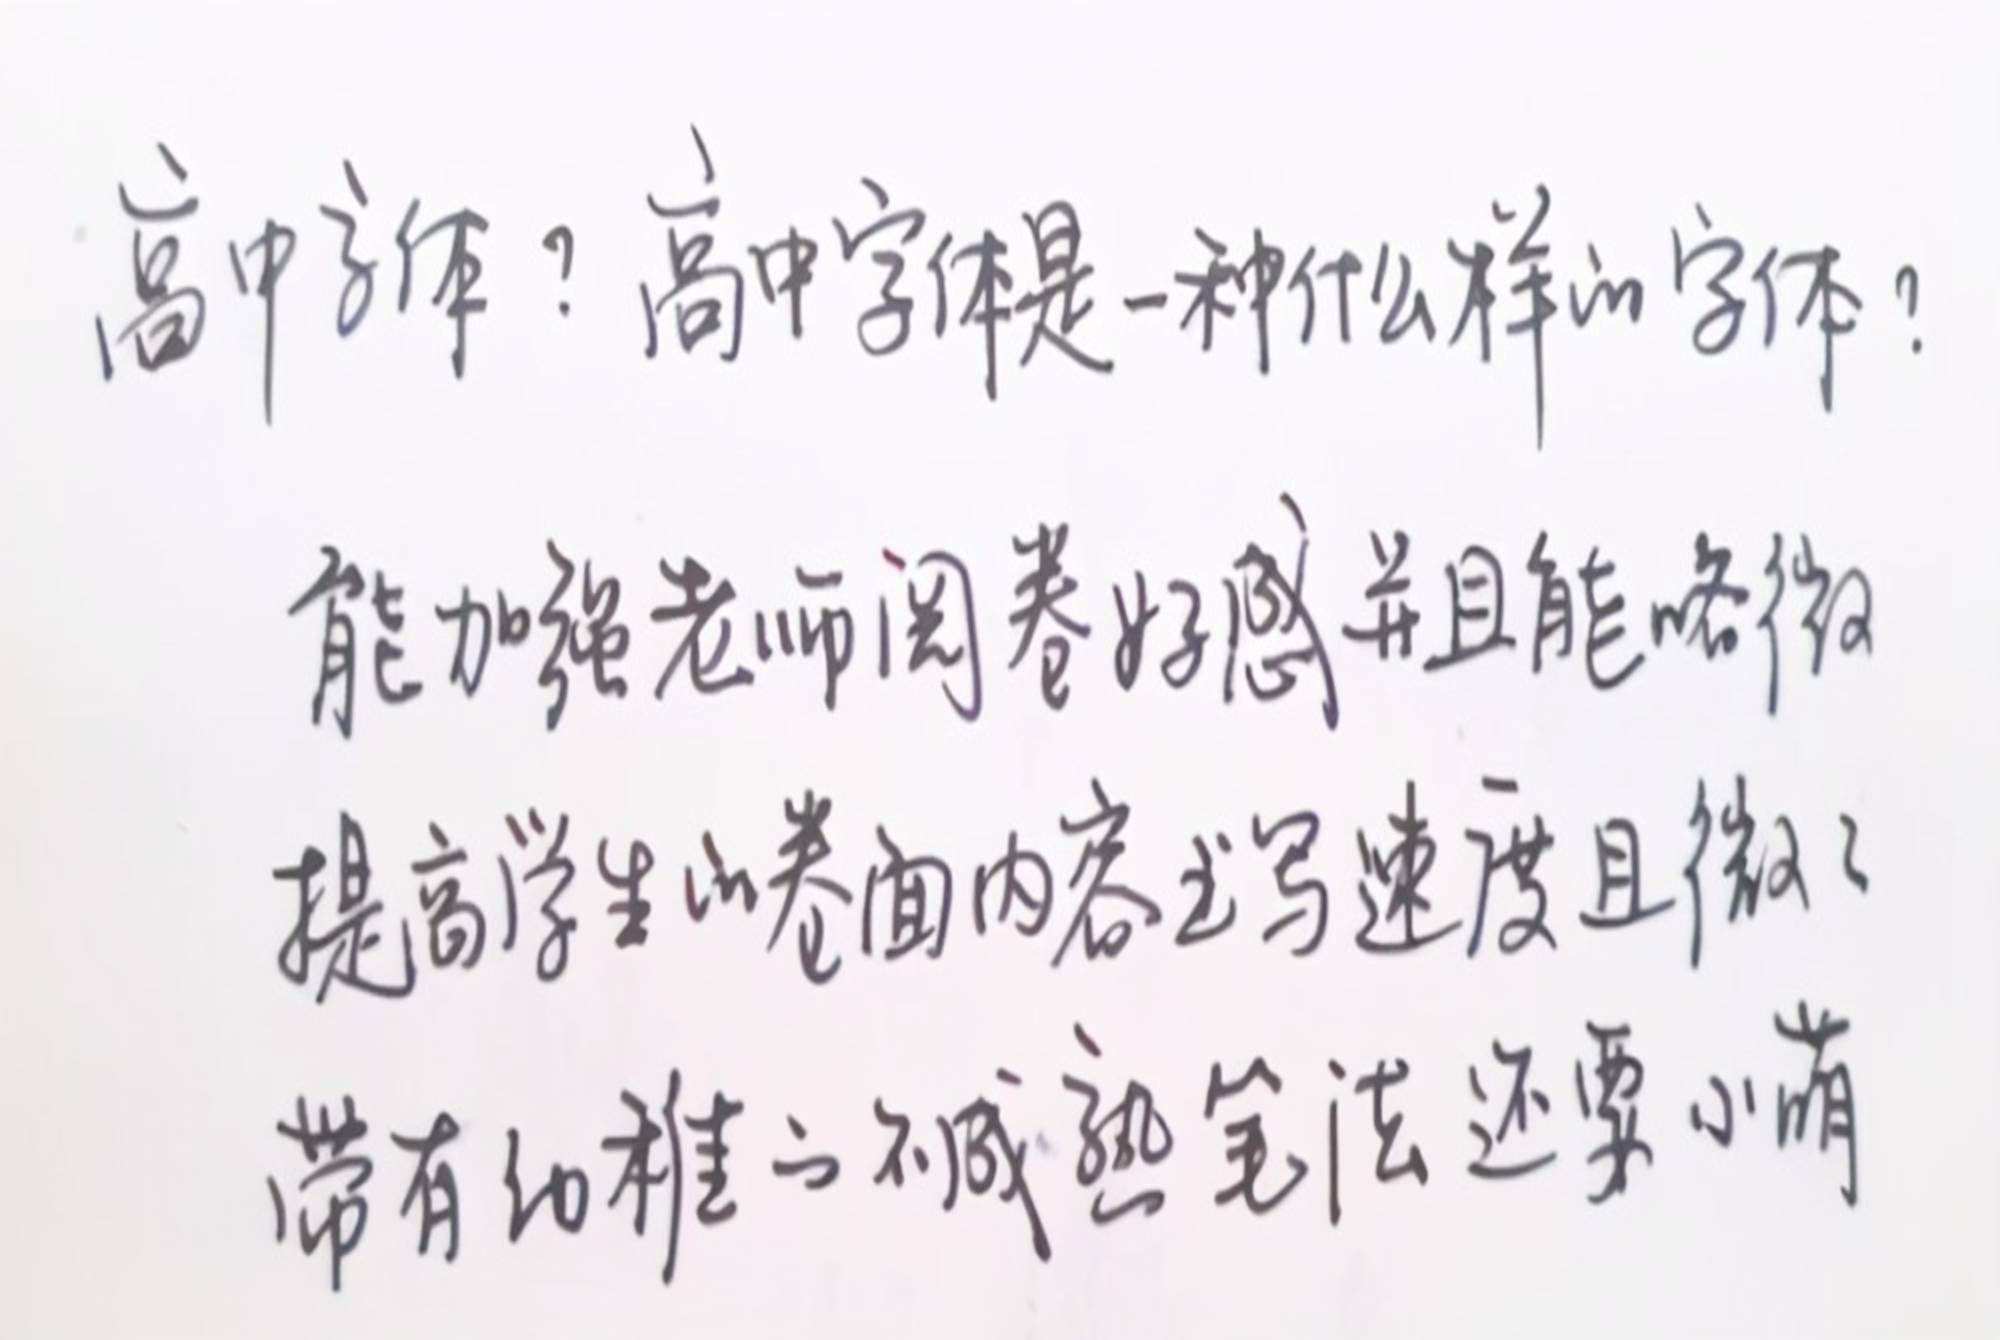 高中字体？高中字体是一种什么样的字体？
能加强老师阅卷好感并且能略微
提高学生的卷面内容书写速度且微微
带有幼稚与不减熟笔法还要小萌